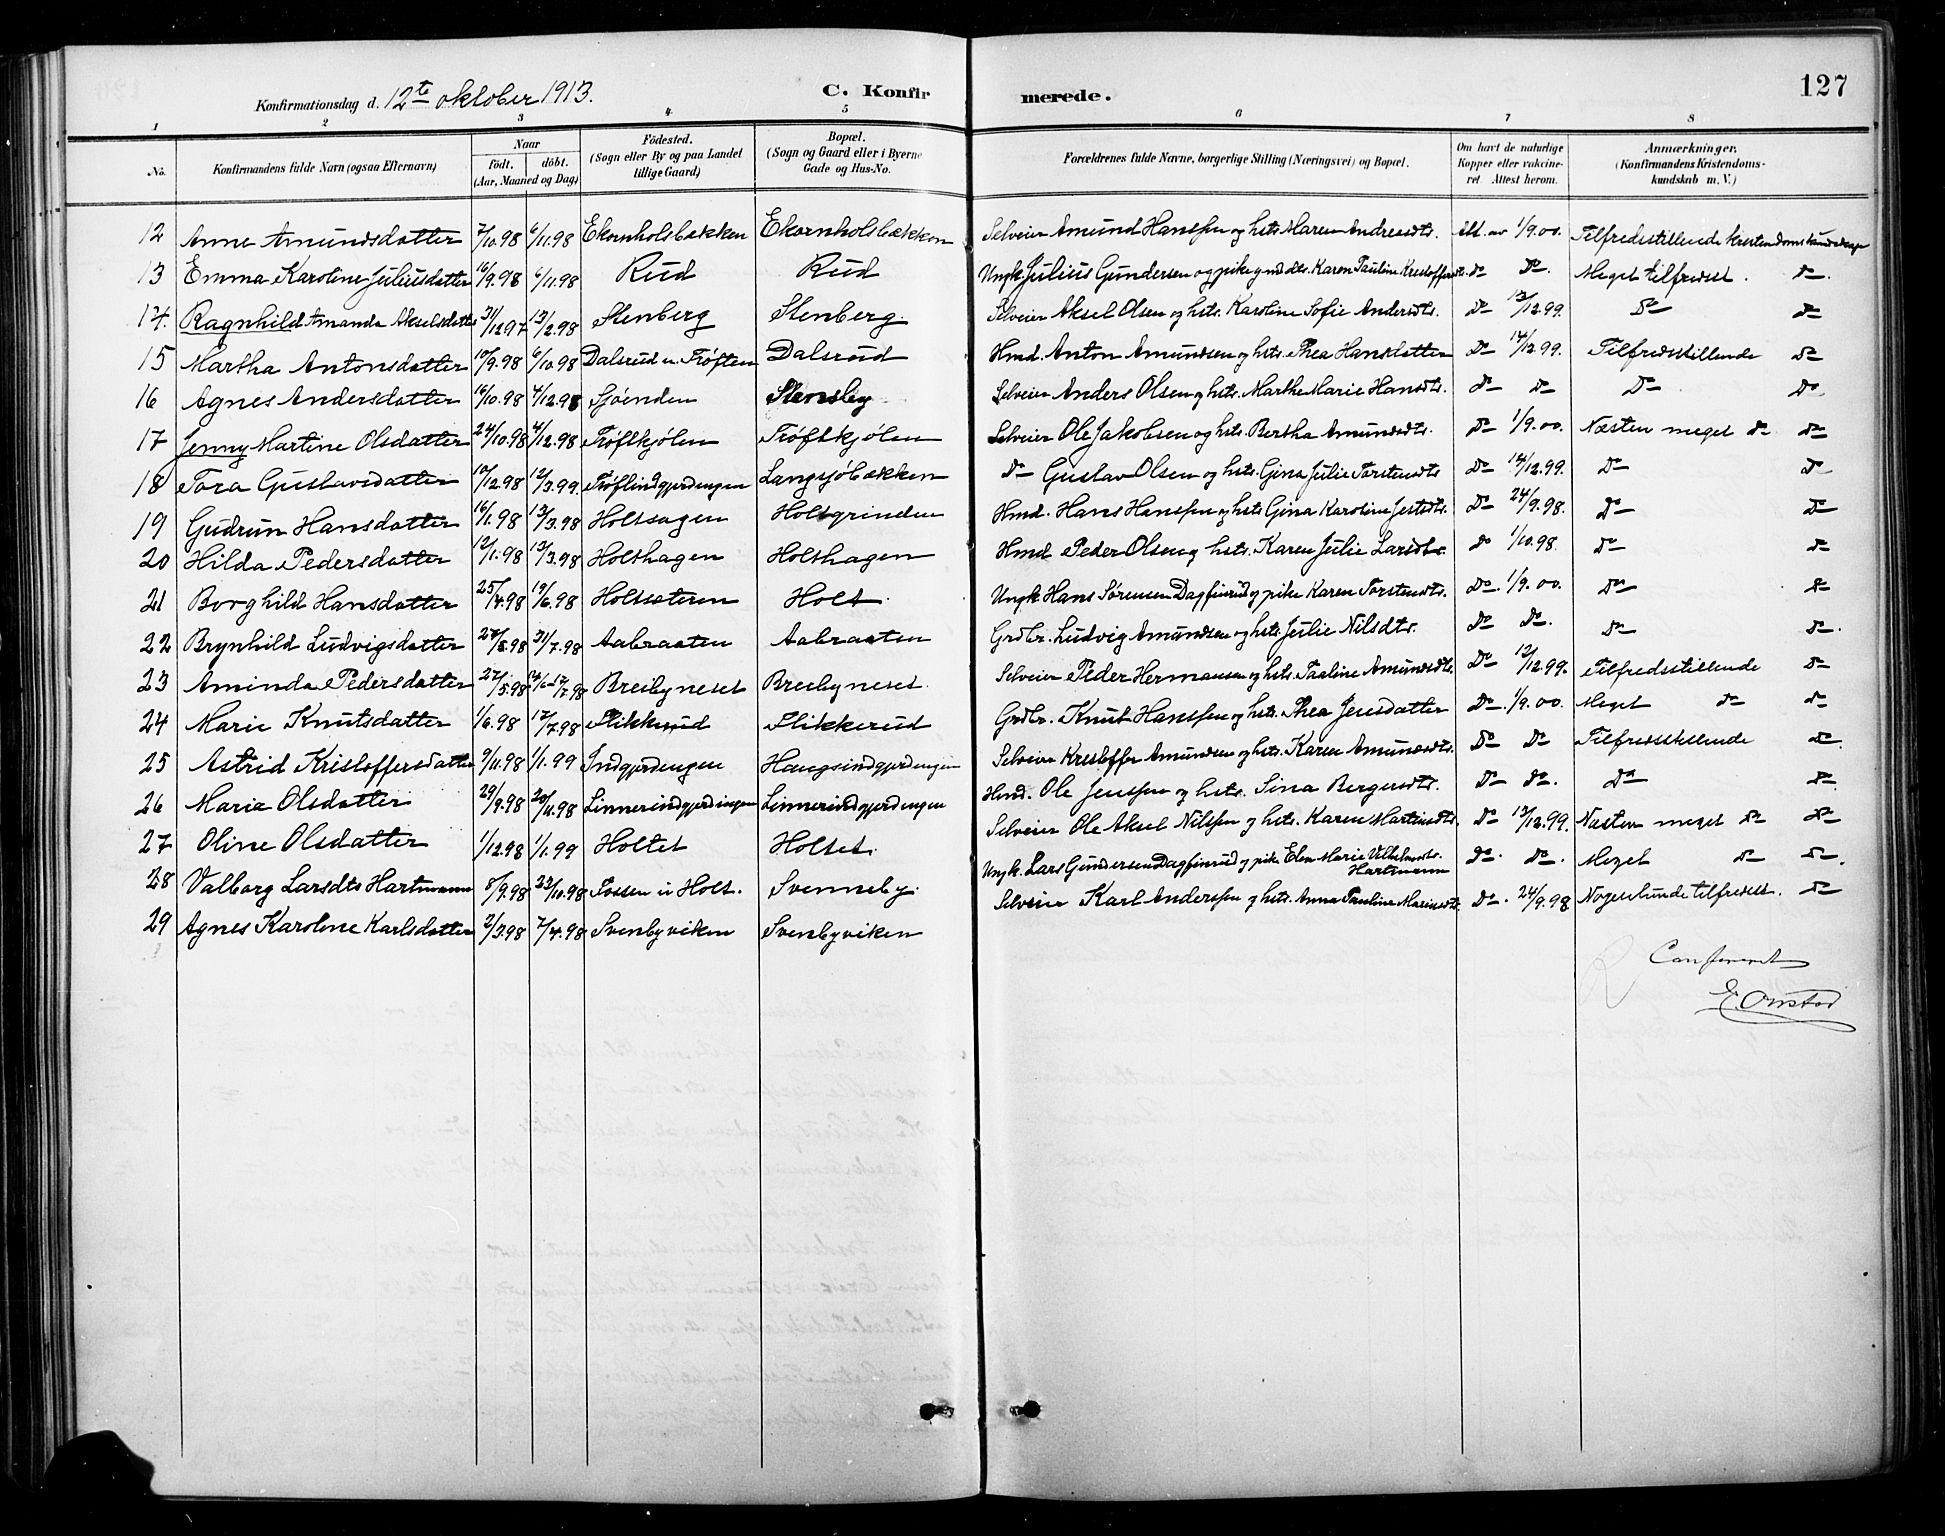 127
Konfirmationsdag d. 12te oktober 1913. C. Konfirmerede.
1 2 3 4 5 6 7 8
No. Konfirmandens fulde Navn (ogsaa Efternavn) Naar født. døbt. (Aar, Maaned og Dag) Fødested. (Sogn eller By og paa Landet tillige Gaard) Bopæl. (Sogn og Gaard eller i Byerne Gade og Hus-No. Forældrenes fulde Navne, borgerlige Stilling (Næringsvei) og Bopæl. Om havt de naturlige Kopper eller vakcineret. Attest herom. Anmærkninger. (Konfirmandens Kristendomskundskab m. V.)
12 Anne Amundsdatter 7/10.98 6/11.98 Ekornholsbækken Ekornholsbækken Selveier Amund Hanssen og hstr. Maren Andreasdtr. Att. av 1/9.00. Tilfredsstillende kristendomskundskap
13 Emma Karoline Juliusdatter 16/9.98 6/11.98 Rud Rud Ungk. Julius Gundersen og pike Karen Pauline Kristoffersdtr. do Do. Meget tilfredsst. do.
14. Ragnhild Amanda Akselsdatter 31/12 97 13/2.98 Stenberg Stenberg. Selveier Aksel Olsen og hstr. Karoline Sofie Andersdtr. do 13/12.99. Do do
15 Martha Antonsdatter 10/9.98 6/10.98 Dalsrud u. Trøften Dalsrud Hmd. Anton Amundsen og hstr. Thea Hansdatter Do 14/12.99. Tilfredsstillende Do
16 Agnes Andersdatter 16/10.98 4/12.98 Sjøenden Stensby Selveier Anders Olsen og hstr. Marthe Marie Hansdtr. do do Do Do
17 Jenny Martine Olsdatter 24/10.98 4/12.98 Trøftkjølen Trøftkjølen Selveier Ole Jakobsen og hstr. Bertha Amundsdtr. Do 1/9.00. Næsten meget do do
18 Tora Gustavsdatter 10/12.98 12/3.99. Trøftindgjerdingen Langsjøbækken Do Gustav Olsen og hstr. Gina Julie Torstensdtr Do 14/12.99. Do do
19 Gudrun Hansdatter 16/1.98 13/3.98 Holtsagen Holtgrinden Hmd. Hans Hanssen og hstr. Gina Karoline Do 24/9.98. Do Do
20 Hilda Pedersdatter 12/1.98 13/3.98 Holthagen Holthagen Hmd Peder Olsen og hstr. Karen Julie Larsdtr. do 1/10.98. do do
21 Borghild Hansdatter 25/4.98 19/6.98 Holtsæteren Holt. Ungk. Hans Sørensen Dagfinrud og pike Karen Torstensdtr. Do. 1/9.00. Do do
22 Brynhild Ludvigsdatter 27/5.98 31/7.98 Aabraaten Aabraaten Grdbr. Ludvig Amundsen og hstr. Julie Nilsdtr. Do Do. Do do.
23 Aminda Pedersdatter 27/5.98 Breibyneset Breibyneset. Selveier Peder Hermansen og hstr. Pauline Amundsdtr. Do 13/12.99. Tilfredsstillende Do
24 Marie Knutsdatter 1/6.98 17/7.98 Flikkerud Flikkerud Grdbr. Knut Hanssen og hstr. Thea Jensdatter Do. 1/9.00. Meget do do
25 Astrid Kristoffersdatter 9/11.98 1/1.99 Indgjerdingen Haugsindgjerdingen Selveier Kristoffer Amundsen og hstr. Karen Amundsdtr. Do Do Tilfredsstillende Do.
26 Marie Olsdatter 29/9.98 20/11.98 Linnerindgjerdingen Linnerindgjerdingen Hmd. Ole Jenssen og hstr. Sina Bergersdtr. Do Do. Do do.
27 Oline Olsdatter 1/12.98 1/1.99 Holtet Holtet. Selveier Ole Aksel Nilssen og hstr. Karen Martinsdtr. Do 13/12.99. Næsten meget do do
28 Valborg Larsdtr Hartmann 8/9.98 23/10.98 Fossen i Holt. Svenneby. Ungk. Lars Gundersen Dagfinrud og pike Elen Marie Vilhelmsdtr. Hartmann Do. Do. Meget do do.
29 Agnes Karoline Karlsdatter 2/3.98 7/4.98 Svenbyviken Svenbyviken Selveier Karl Anderssen og hstr. Anna Pauline Mariusdtr. Do. 24/9.98 Nogenlunde tilfredsst. do
Confereret
E. Onstad